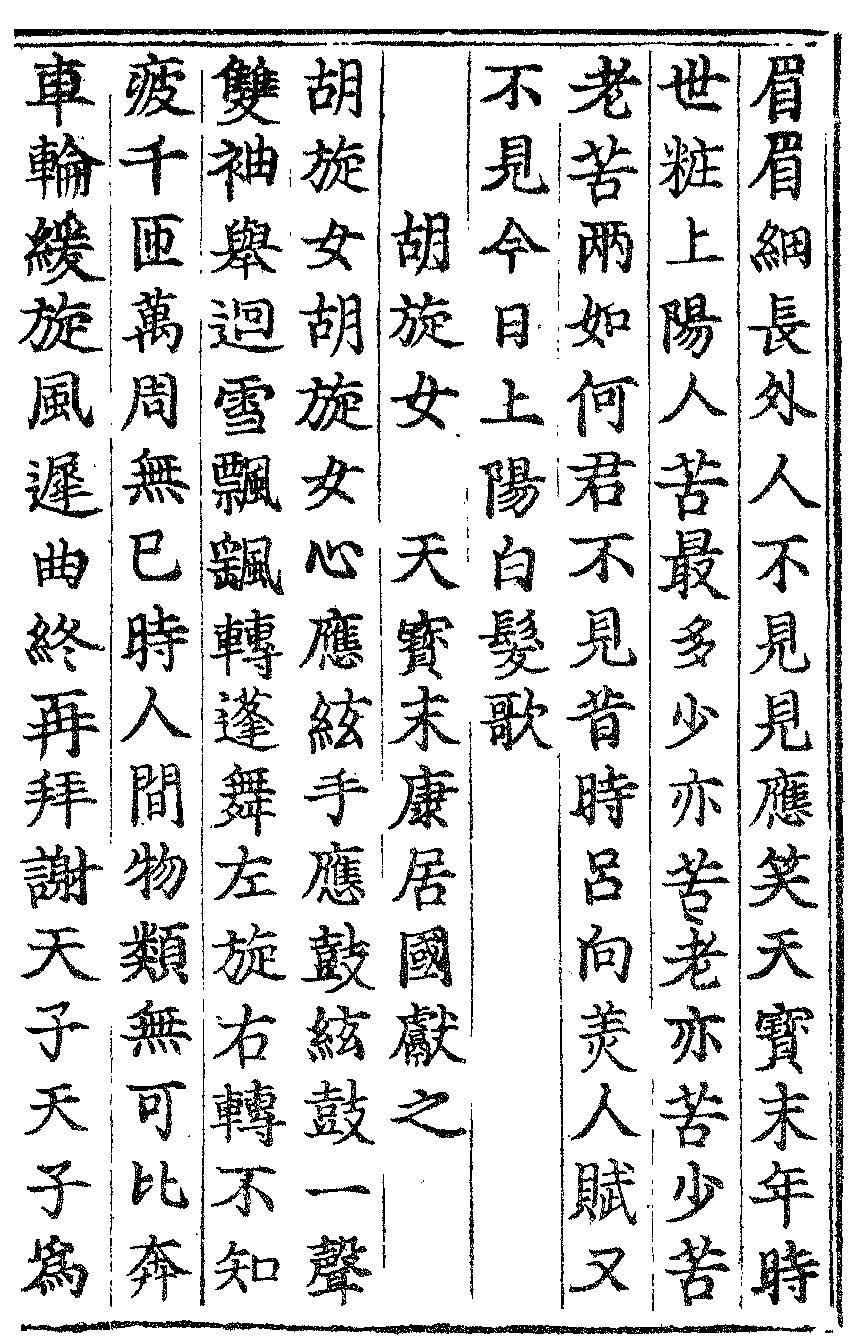 眉眉細長外人不見見應笑天寳末年時
世粧上陽人苦最多少亦苦老亦苦少苦
老苦兩如何君不見昔時呂向羙人賦又
不見今日上陽白髮歌
胡旋女　天寳末康居國獻之
胡旋女胡旋女心應絃手應鼓絃鼓一聲
雙袖舉迴雪飄颻轉蓬舞左旋右轉不知
疲千匝萬周無已時人間物類無可比奔
車輪緩旋風遲曲終再拜謝天子天子爲